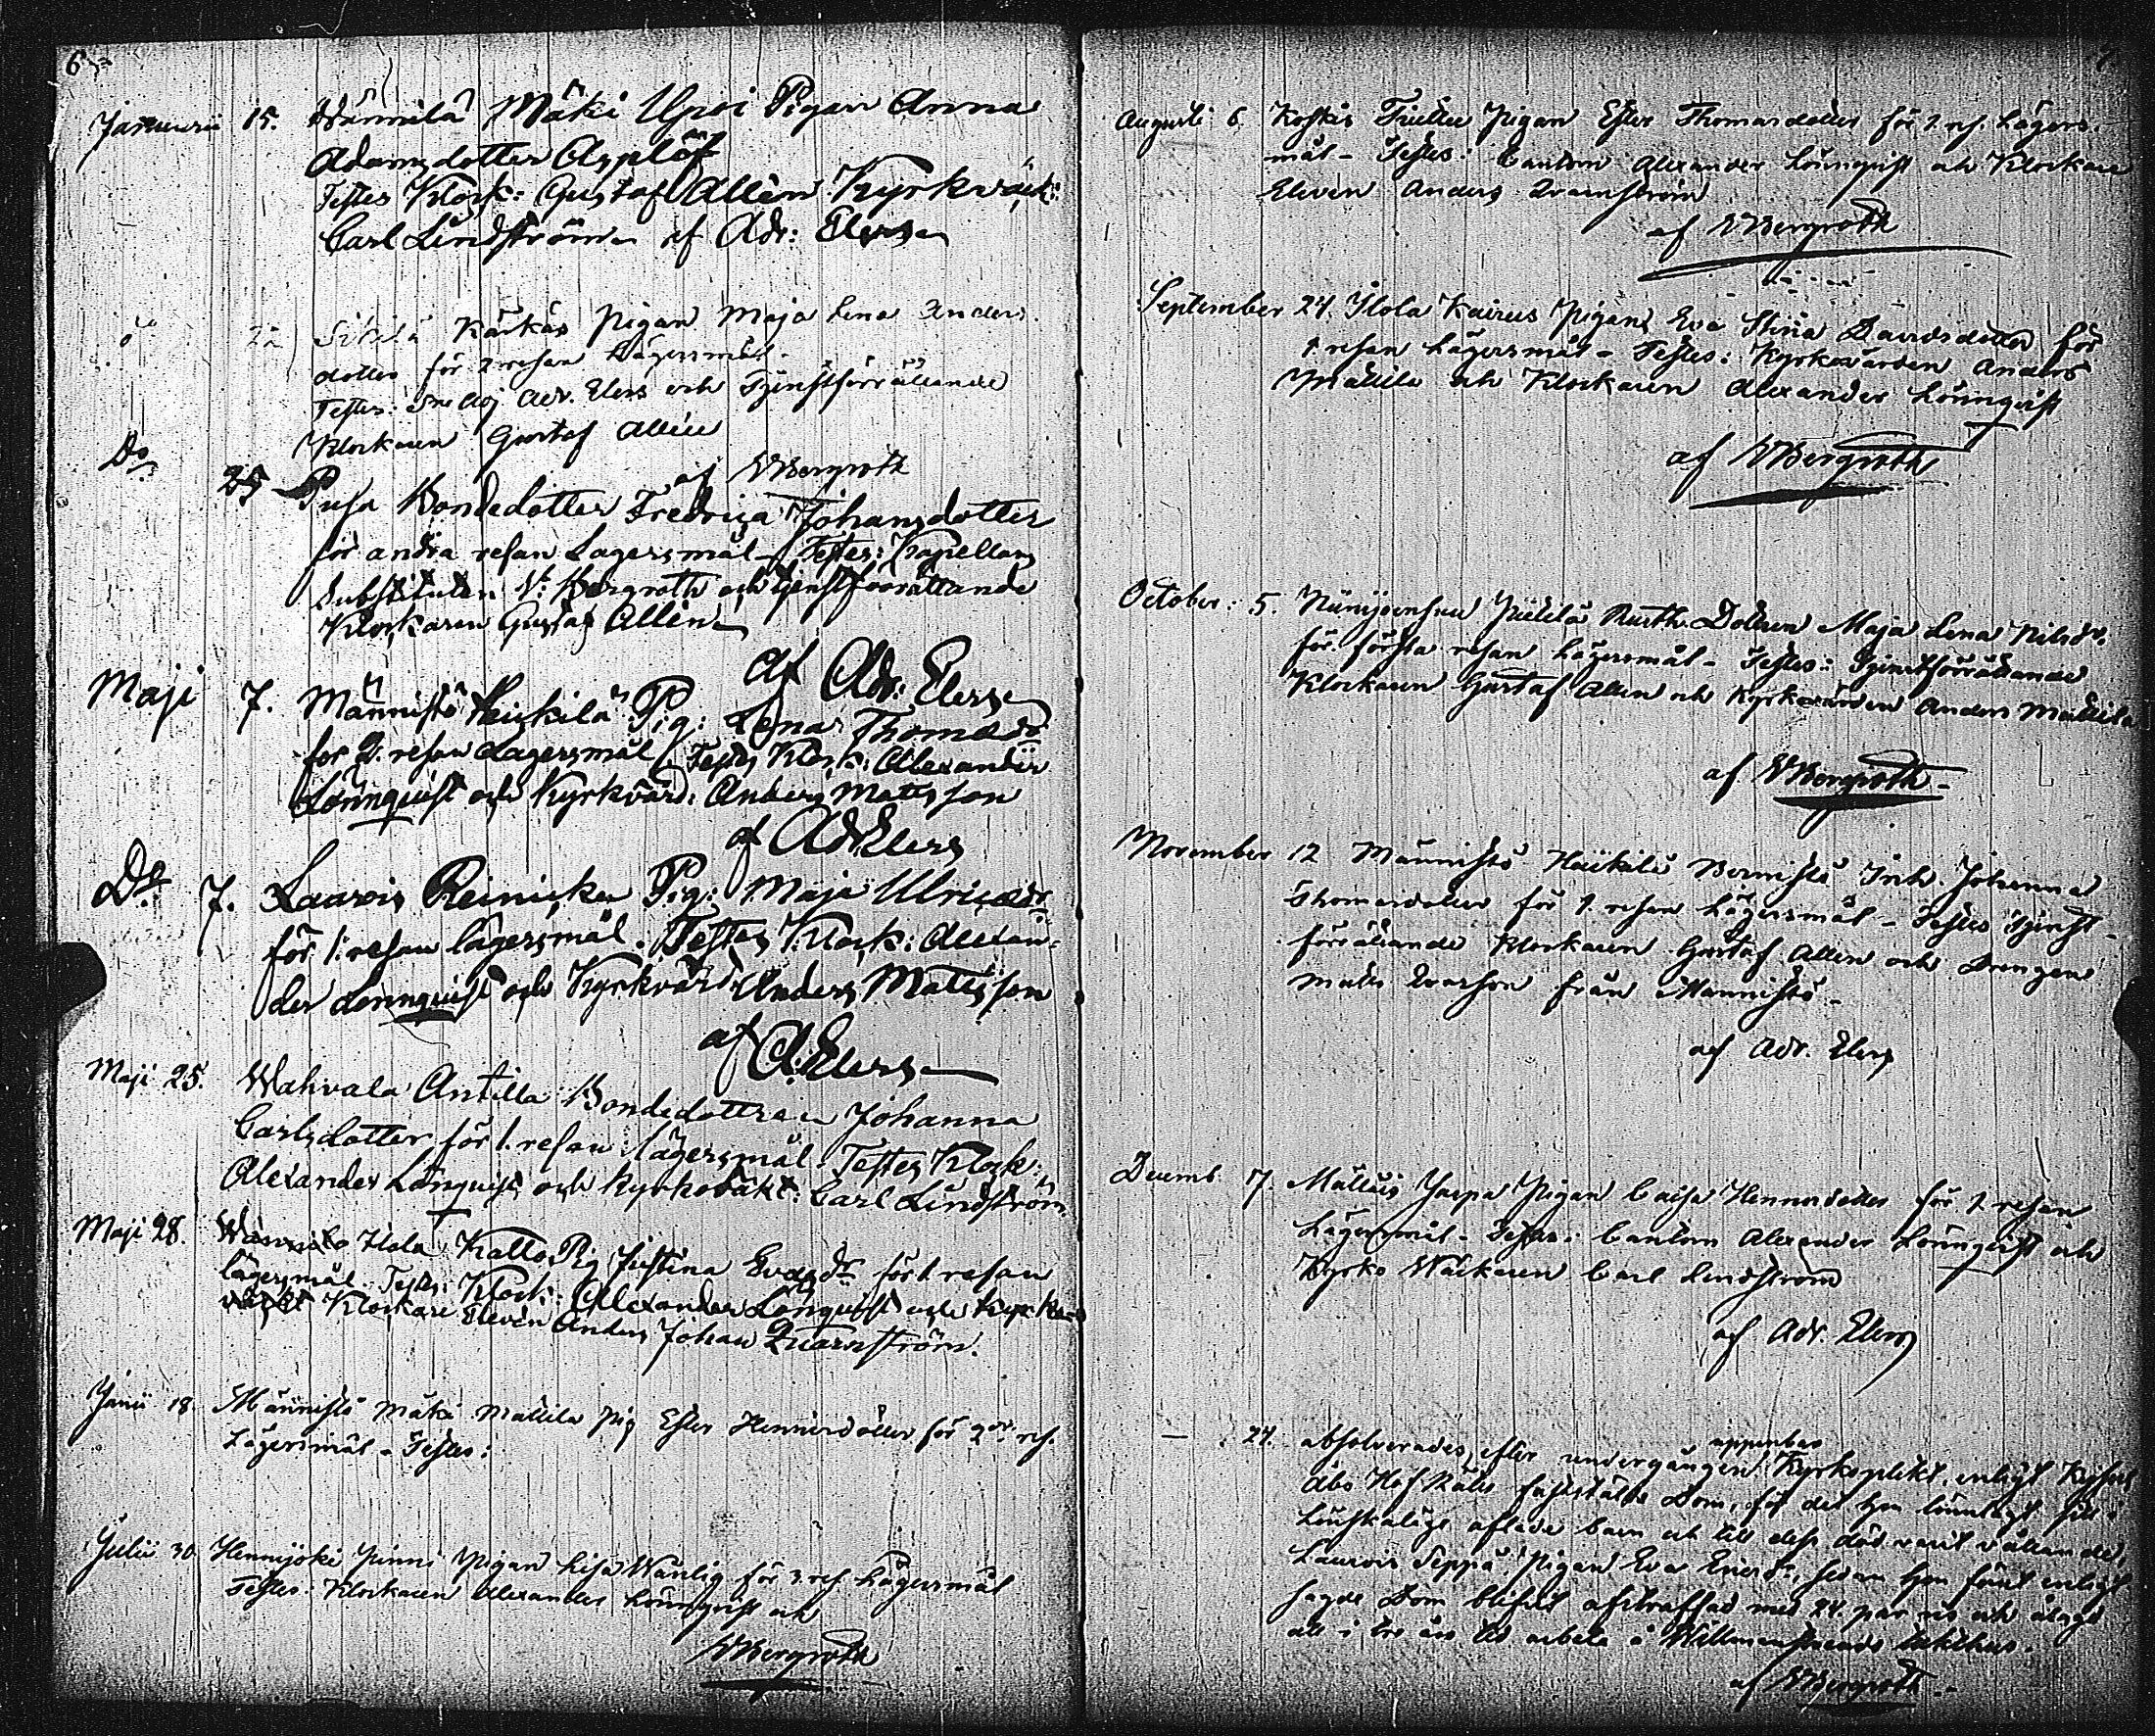 6
Januarii 15. Wännilä Mäki Uproi Pigan Anna
Adamsdotter Asplöf
Testes Klock: Gustaf Allén Kyrkväct:
Carl Lindström af Adr: Elers
do 22 Sikilä Karkas pigan Maja Lena Anders
dotter för 2 resan Lägersmål
Testes: Adj Adr. Elers och Tjenstförrättande
Klockaren Gustaf Allén
af VBergroth
Do 25 Pusa Bondedotter Fredrica Johansdotter
för andra resan Lägersmål – Testes: Kapellans
Substituten V: Bergroth och tjenstförrättande
Klockaren Gustaf Allén
af Adr: Elers
Maji 7. Männistö Heickilä Pig: Lena Thomasdr
för 2. resan Lägersmål Testes Klock: Alexander
Lönnquist och Kyrkvärd: Anders Matsson
af AdElers
Do 7. Laurois Reinicka Pig: Maja Ulricadr
för 1: resan lägersmål. Testes Klock: Alexan=
der Lönnquist och Kyrkvärd: Anders Matsson
af A: Elers
Maji 25. Wahvala Antilla Bondedottren Johanna
Carlsdotter för 1. resan lägersmål. Testes Klock:
Alexander Lönquist och kyrkoväkt: Carl Lindström
Maji 28. Ilola Kallo Pig Justina Evasdr för 1 resan
lägersmål. Testes: Klock: Alexander Lönquist och
Klockare Eleven Anders Johan Quarnström.
Junii 18. Männistö Mäki Mattila pig Ester Henricsdotter för 2dra res.
Lägersmål – Testes:
Julii 30 Hennijoki pigan Lisa Wänlig för 3 res Lägersmål
Testes: Klockaren Alexander Lönnqvist och
VBergroth
7
Augusti 6 Koskis pigan Ester Thomasdotter för 1. res. Lägers-
mål – Testes: Cantorn Alexander Lönnqvist och Klockare
Eleven Anders Qvarnström
af VBergroth
September 24. Ilola Kaireus pigan Eva Stina Davidsdotter för
1 resan Lägersmål – Testes: Kyrkovärden Anders
Mattila och Klockaren Alexander Lönnqvist
af VBergroth
October: 5. Nünijoensuu Dottren Maja Lena Nilsdr.
för första resan Lägersmål – Testes: Tjenstförrättande
Klockaren Gustaf Allén och Kyrkovärden Anders Mattila
af VBergroth
November 12 Männistö Heikkilä Inh. Johanna
Thomasdotter för 1. resan Lägersmål – Testes Tjenst-
förrättande Klockaren Gustaf Allén och Drengen
Mats Ivarsson från Männistö –
af Adr. Elers
Decemb. 17. Mattis Jaspa Pigan Caisa Henricsdotter för 1 resan
Lägersmål – Testes: Cantorn Alexander Lönnqvist och
Kyrko Wäktaren Carl Lindström
af Adr. Elers
— 24. absolverades, efter undergången uppenbar Kyrkoplikt, enligt Kejserl.
Åbo HofRätts fastställte Dom, för det hon lönnlagt sitt i
Löuskaläge aflade barn och till dess död varit vållande,
Laurois Seppä Pigan Eva Ericsdr, sedan hon förut enligt
sagde Dom blifvit afstraffad med 24. par ris och ålagd
att i tre års tid arbeta å Willmanstrands tukthus.
af VBergroth